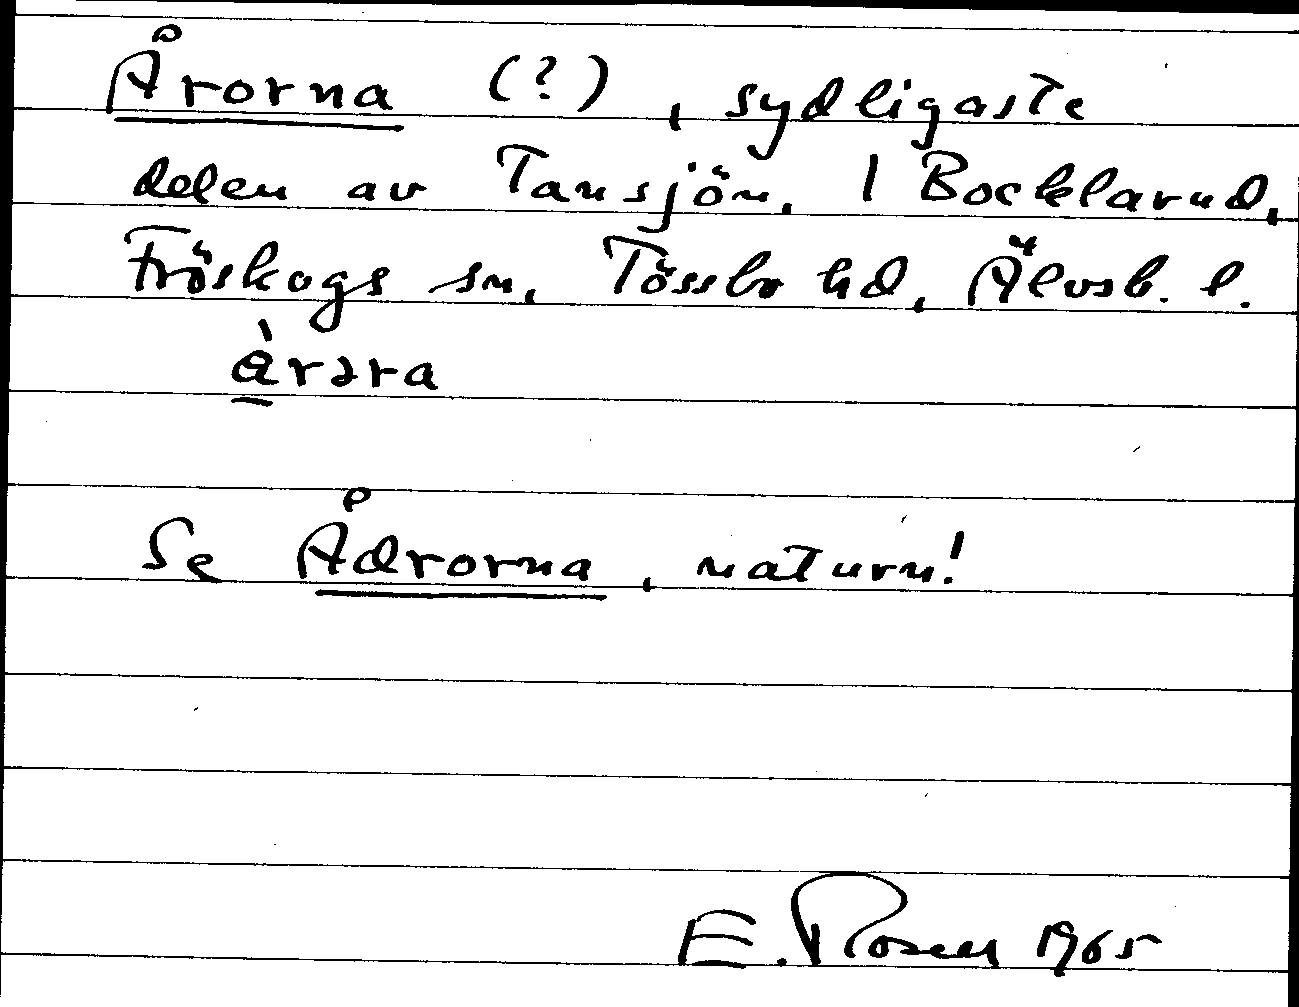 Årorna (?), sydligaste
delen av Tansjön, i Bocklarud,
Fröskogs sn, Tössbo hd, Älvsb. l.
àrəra
Se Ådrorna, naturn!
E. Rosell 1965